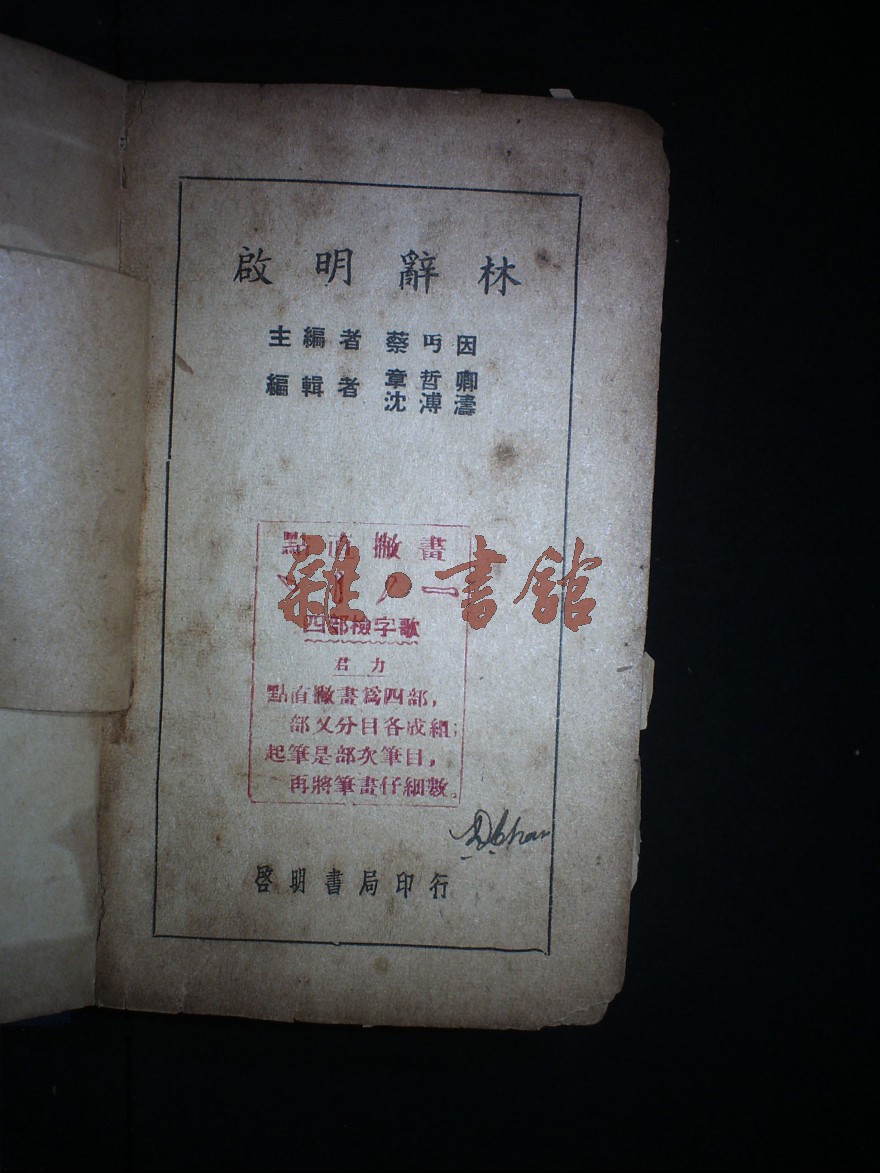 啟明辭林
主編者 蔡丏因
編輯者 章哲卿
沈溥濤
點直撇畫
雜·書館
四部檢字歌
君力
點直撇畫爲四部，
部又分目各成組；
起筆是部次筆目，
再將筆畫仔細數。
啓明書局印行